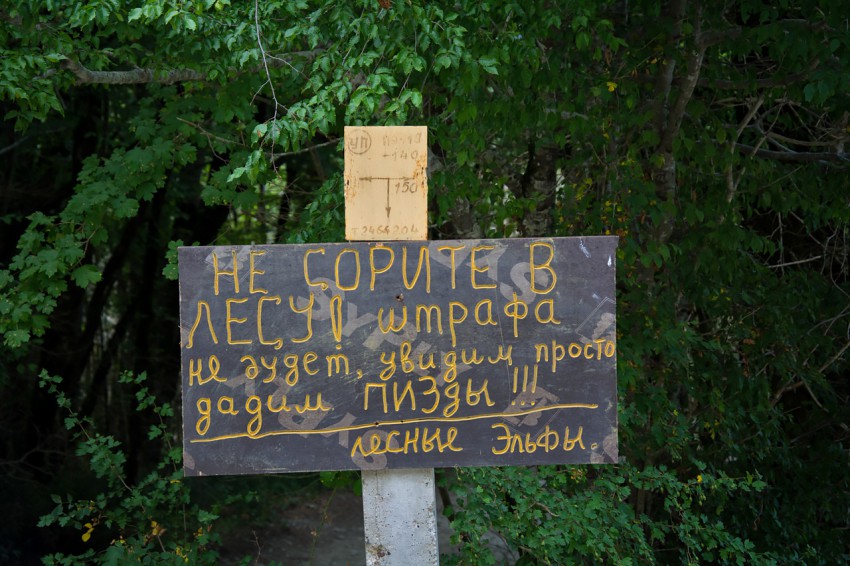 УП
-140
150
Т2466204
НЕ СОРИТЕ В
ЛЕСУ! штрафа
не будет, увидим просто
дадим ПИЗДЫ !!!
лесные Эльфы.